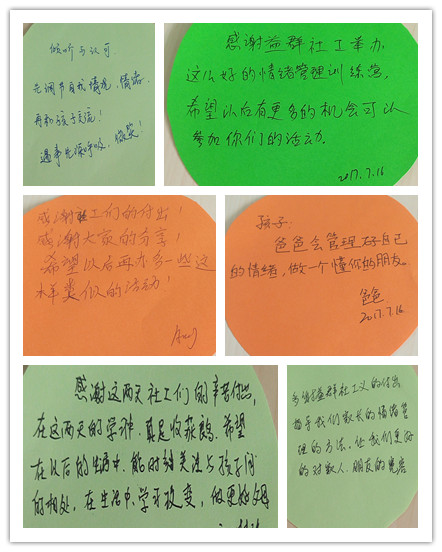 倾听与认可.
先调节自我情绪, 情绪.
再和孩子交流!
遇事先深呼吸, 微笑!
感谢益群社工举办
这么好的情绪管理训练营,
希望以后有更多的机会可以
参加你们的活动.
2017.7.16
感谢社工们的付出!
感谢大家的分享!
希望以后再办多一些这
样类似的活动!
孩子:
爸爸会管理好自己
的情绪, 做一个懂你的朋友.
爸爸
2017.7.16
感谢这两天社工们的辛苦付出,
在这两天的学习中, 真是收获
希望
在以后的生活中, 能时刻关注与孩子间
的相处, 在生活中, 学习改变, 做更好父母
益群社工的付出
给予我们家长的情绪管
理的方法. 让我们更好
的对家人. 朋友的